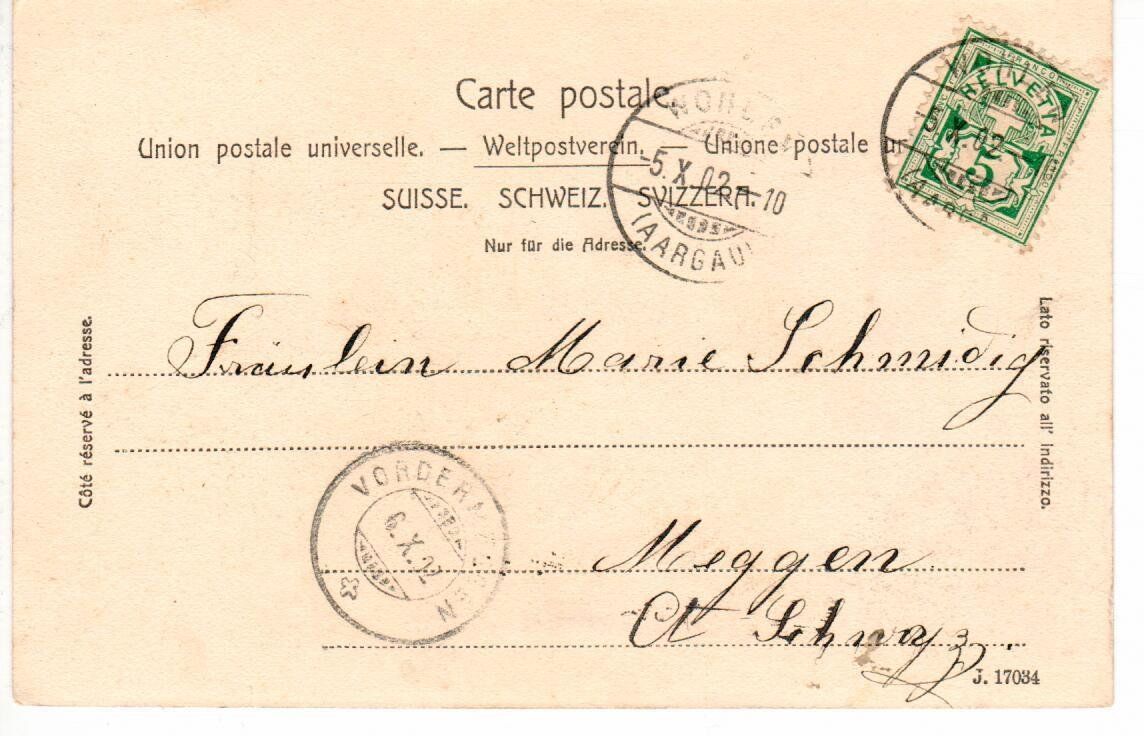 Carte postale
Union postale universelle. — Weltpostverein. — Unione postale
SUISSE. SCHWEIZ. SVIZZERA.
Nur für die Adresse.
-5.X.02 - 10
(AARGAU)
FRANCO
HELVETIA
5
5.X.02
Côté réservé à l'adresse.
Fräulein Marie Schmidig
Lato riservato all' indirizzo.
6.X.02
Meggen
Ct Schwyz
J. 17034